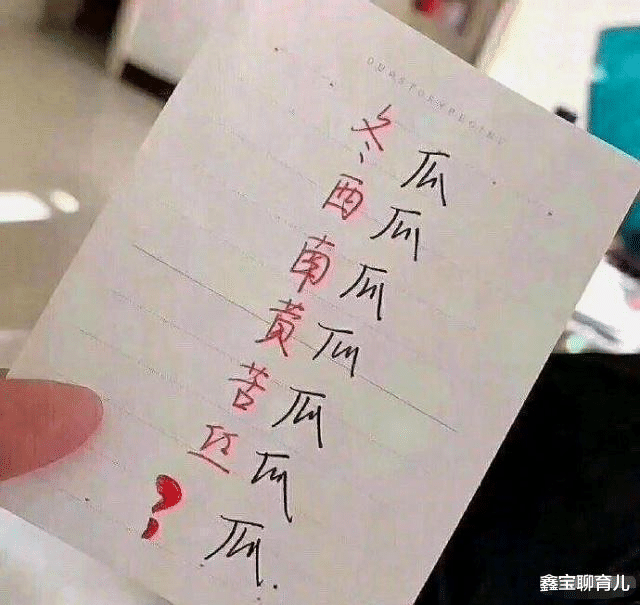 冬瓜
西瓜
南瓜
黄瓜
苦瓜
瓜
? 瓜.
鑫宝聊育儿